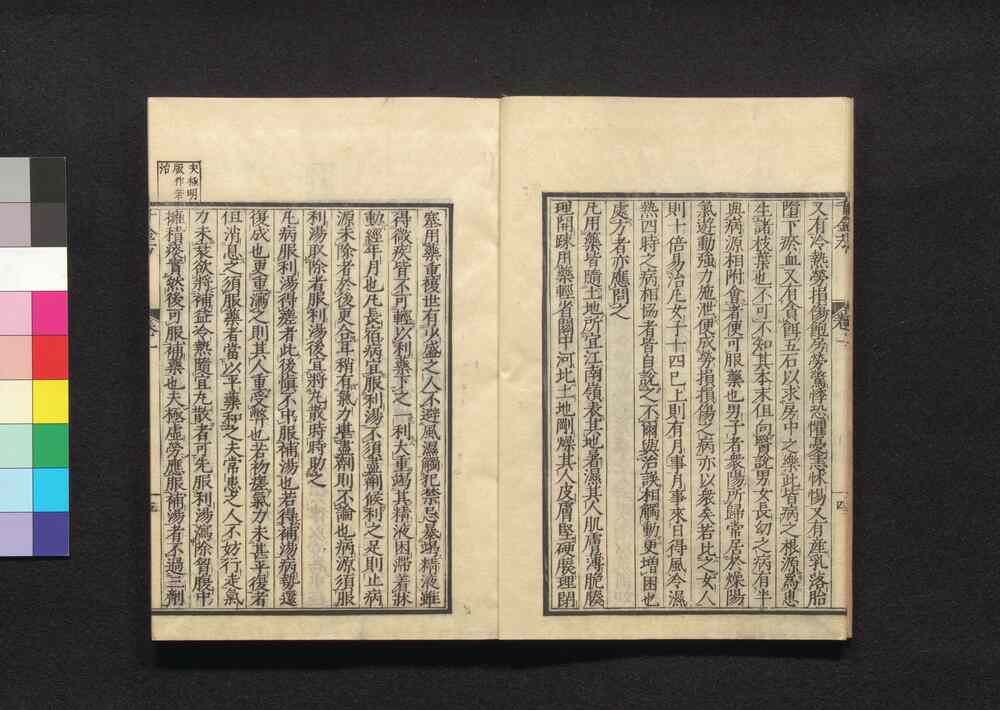 又有冷熱勞損傷飽房勞驚悸恐懼憂恚怵惕又有産乳落胎
墮下瘀血又有貪餌五石以求房中之樂此皆病之根源爲患
生諸枝葉也不可不知其本末但向醫說男女長幼之病有半
與病源相附會者便可服藥也男子者衆陽所歸常居於燥陽
氣遊動強力施泄便成勞損損傷之病亦以衆矣若比之女人
則十倍易治凡女子十四已上則有月事月事來日得風冷濕
熱四時之病相協者皆自說之不爾與治誤相觸動更增困也
處方者亦應問之
凡用藥皆隨土地所宜江南嶺表其地暑濕其人肌膚薄脆腠
理開踈用藥輕省關中河北土地剛燥其人皮膚堅硬腠理閉
四
塞用藥重複世有少盛之人不避風濕觸犯禁忌暴竭精液雖
得微疾皆不可輕以利藥下之一利大重竭其精液困滯著牀
動經年月也凡長宿病宜服利湯不須盡劑候利之足則止病
源未除者於後更合耳稍有氣力堪盡劑則不論也病源須服
利湯取除者服利湯後宜將丸散時時助之
凡病服利湯得瘥者此後愼不中服補湯也若得補湯病勢還
復成也更重瀉之則其人重受弊也若初瘥氣力未甚平復者
但消息之須服藥者當以平藥和之夫常患之人不妨行走氣
力未衰欲將補益冷熱隨宜丸散者可先服利湯瀉除胷腹中
擁積痰實然後可服補藥也夫極虛勞應服補湯者不過三劑
夫極明
版作若
治